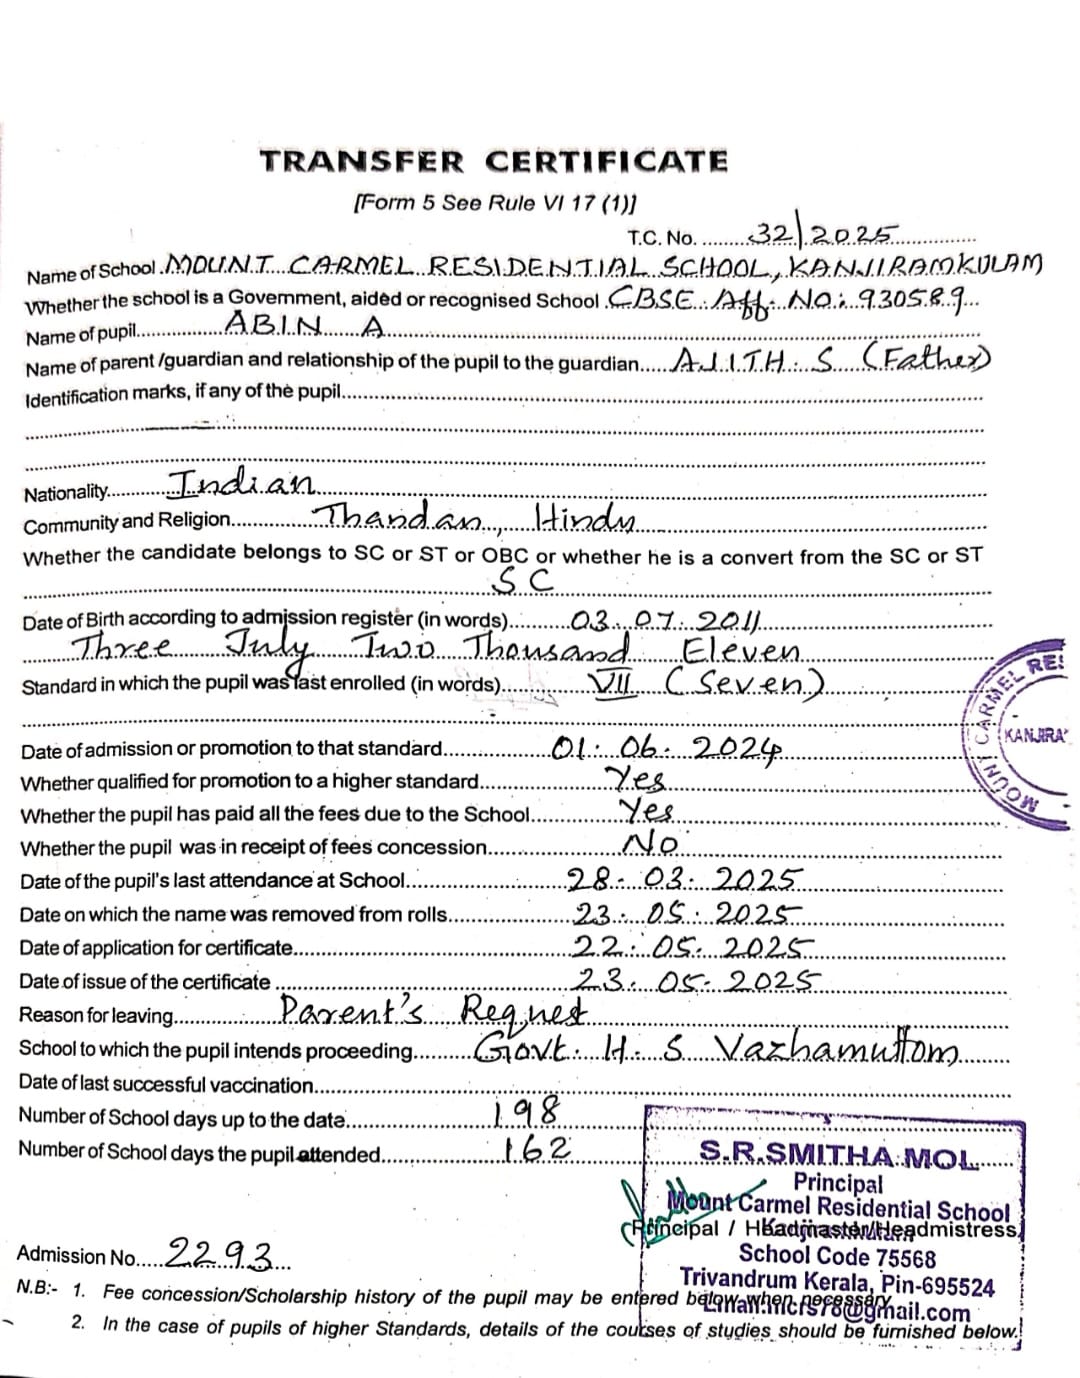 TRANSFER CERTIFICATE
[Form 5 See Rule VI 17 (1)]
T.C. No. 32/2025
Name of School MOUNT CARMEL RESIDENTIAL SCHOOL, KANJIRAMKULAM
Whether the school is a Government, aided or recognised School CBSE Aff. No: 930589
Name of pupil ABIN A
Name of parent/guardian and relationship of the pupil to the guardian AJITH. S (Father)
Identification marks, if any of the pupil
Nationality Indian
Community and Religion Thandan, Hindu
Whether the candidate belongs to SC or ST or OBC or whether he is a convert from the SC or ST
SC
Date of Birth according to admission register (in words) 03.07.2011
Three July Two Thousand Eleven
Standard in which the pupil was last enrolled (in words) VII (Seven)
MOUNT CARMEL RES
KANJIRA
Date of admission or promotion to that standard 01.06.2024
Whether qualified for promotion to a higher standard Yes
Whether the pupil has paid all the fees due to the School Yes
Whether the pupil was in receipt of fees concession No
Date of the pupil's last attendance at School 28.03.2025
Date on which the name was removed from rolls 23.05.2025
Date of application for certificate 22.05.2025
Date of issue of the certificate 23.05.2025
Reason for leaving Parent's Request
School to which the pupil intends proceeding Govt. H. S Vazhamuttom
Date of last successful vaccination
Number of School days up to the data 198
Number of School days the pupil attended 162
S.R.SMITHA MOL
Principal
Mount Carmel Residential School
Principal / Headmaster/Headmistress
School Code 75568
Trivandrum Kerala, Pin-695524
Admission No. 2293
N.B:- 1. Fee concession/Scholarship history of the pupil may be entered below when necessary
@gmail.com
2. In the case of pupils of higher Standards, details of the courses of studies should be furnished below.